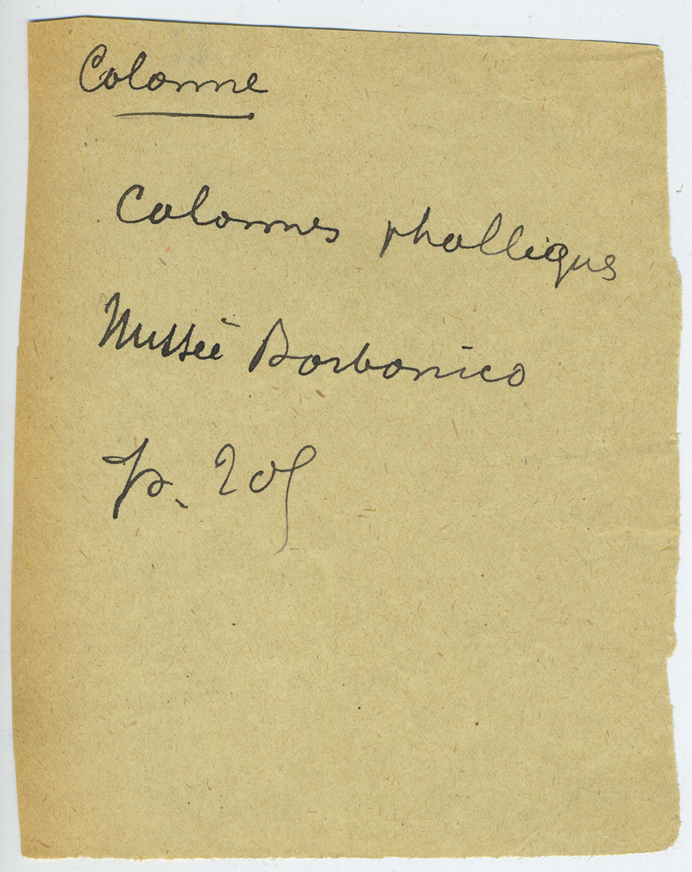 Colonne
Colonnes phalliques
Musée Borbonico
p. 205